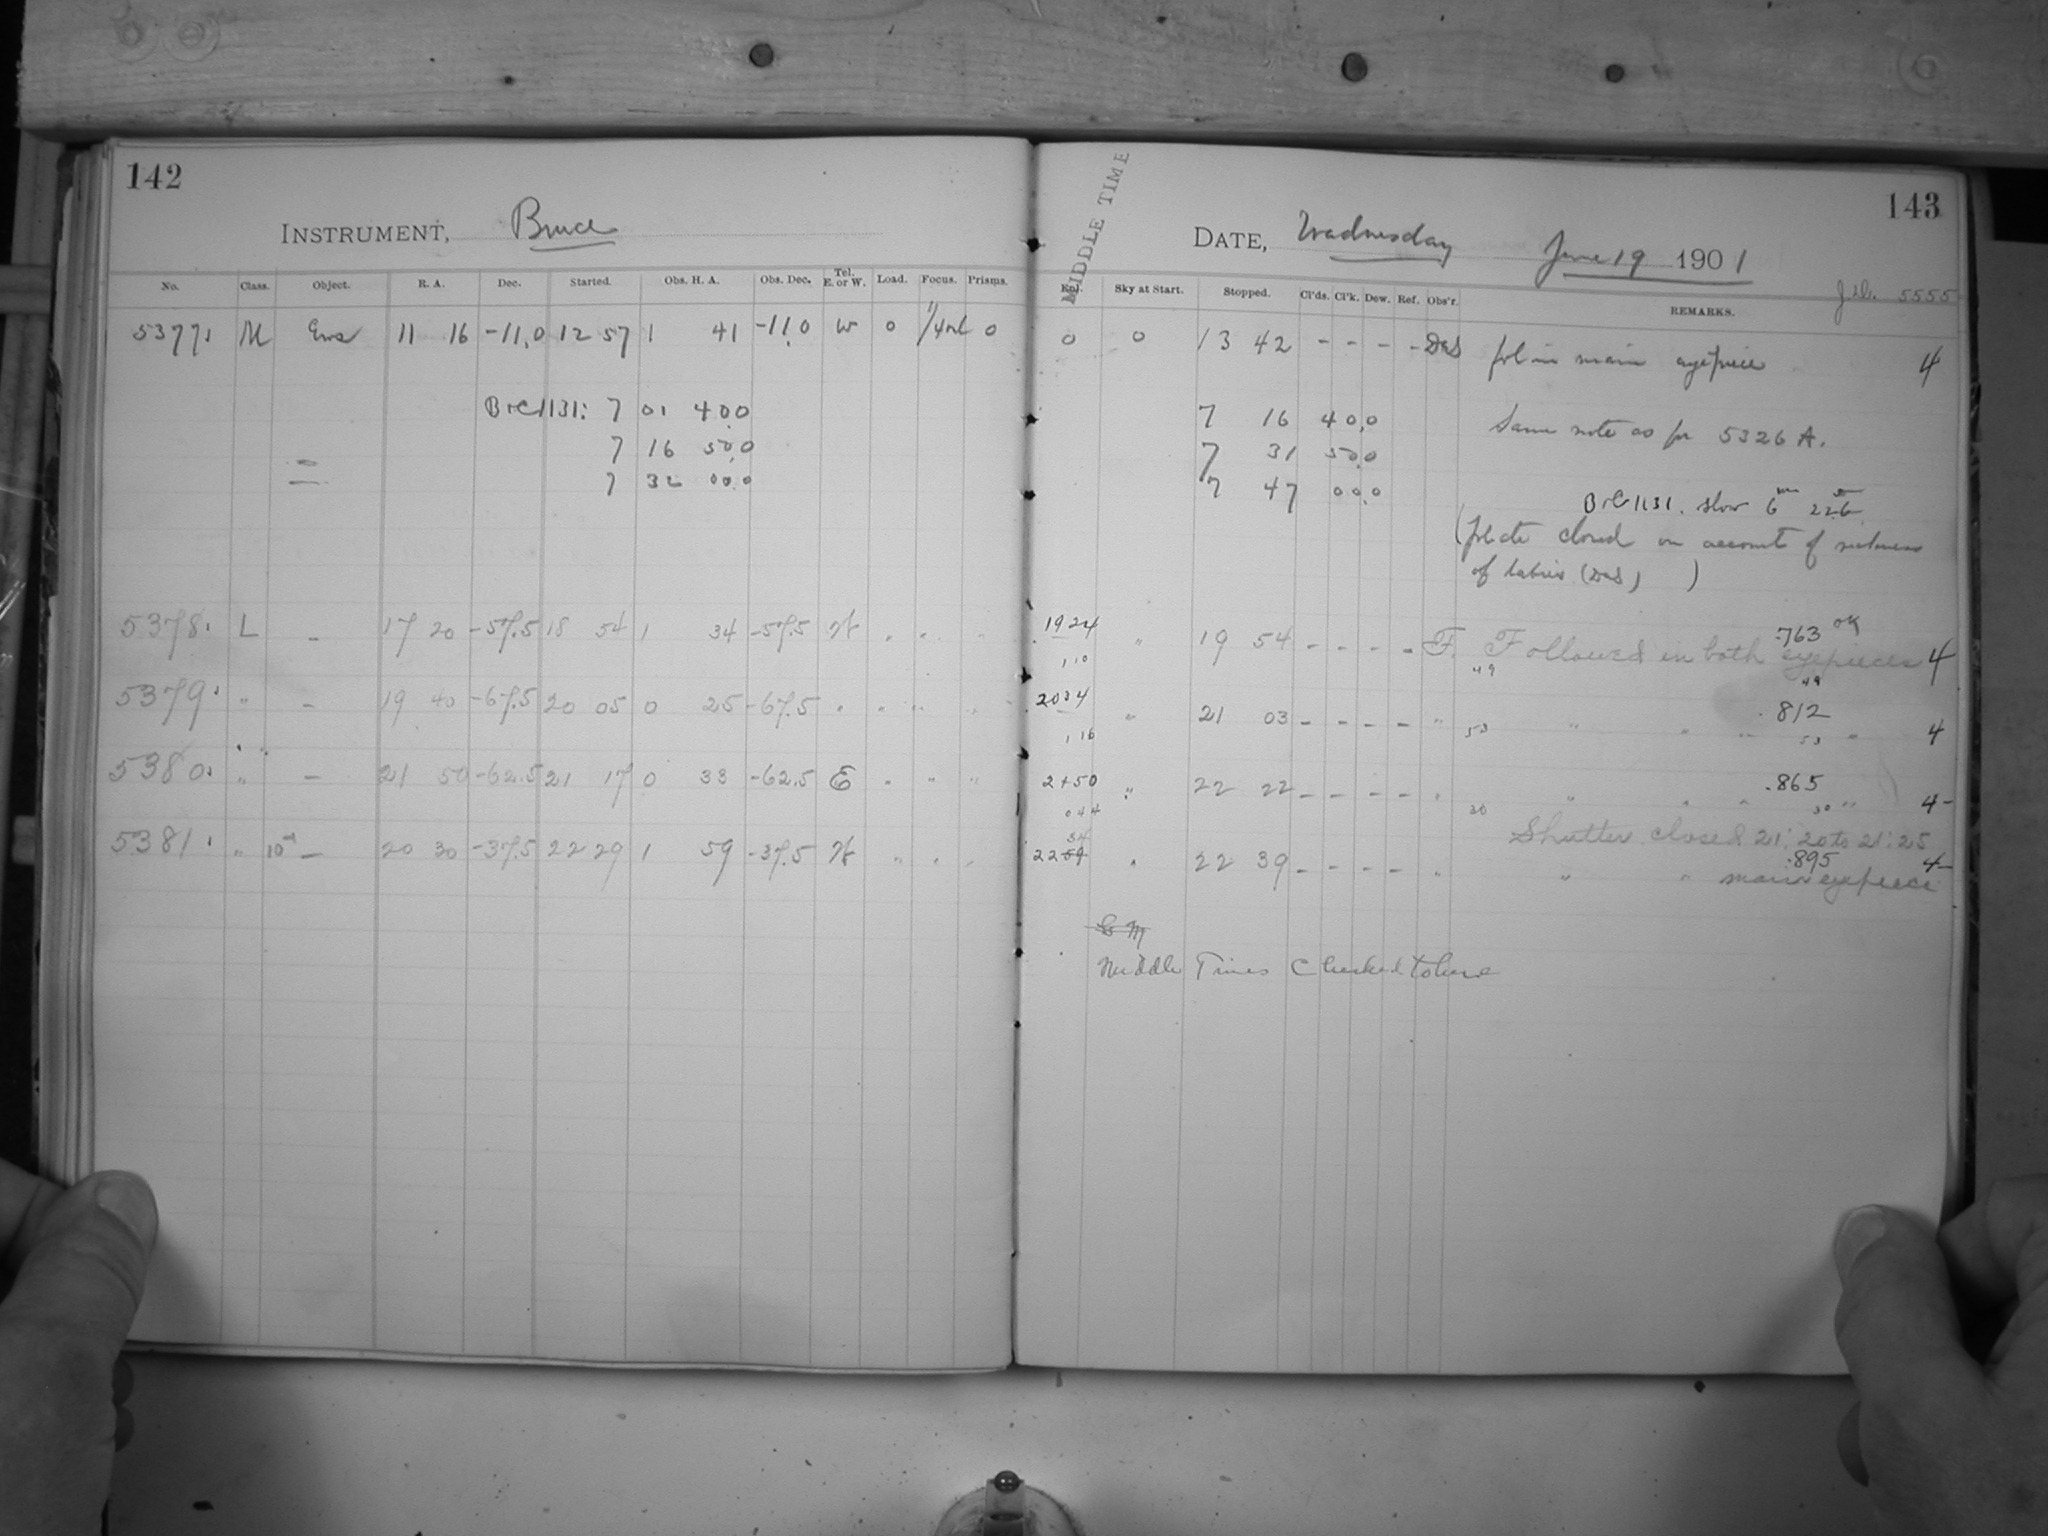 142
INSTRUMENT, Bruce
No. Class. Object. R. A. Dec. Started. Obs. H. A. Obs. Dec. Tel. E. or W. Load. Focus. Prisms.
5377 M Eros 11 16 -11.0 12 57 1 41 -11.0 W 0 0
B&C 1131: 7 01 40.0
7 16 50.0
7 32 00.0
5378 L - 17 20 -57.5 18 54 1 34 -57.5 W " "
5379 " - 19 40 -67.5 20 05 0 25 -67.5 " " "
5380 " - 21 50 -62.5 21 17 0 33 -62.5 E " " "
5381 " 10m - 20 30 -37.5 22 29 1 59 -37.5 W " " "
143
MIDDLE TIME
DATE, Wednesday June 19 1901
J.D. 5555
Sky at Start. Stopped. Cl'ds. Cl'k. Dew. Ref. Obs'r. REMARKS.
0 0 13 42 - - - - fol in main eyepiece 4
7 16 40.0 Same note as for 5326 A.
7 31 50.0
7 47 00.0
B&C 1131. slow 6m 22.6s
(Plate closed on account of sickness
of babies )
19 24 " 19 54 - - - - F. Followed in both eyepieces .763 OK 4
1 10 49 49
20 34 " 21 03 - - - - " " " " " .812 4
1 16 53 53
21 50 " 22 22 - - - - " " " " " .865 4
0 44 30 30
Shutter closed 21:20 to 21:25
34
22 59 " 22 39 - - - - " " " main eyepiece .895 4
Middle Times Checked to here